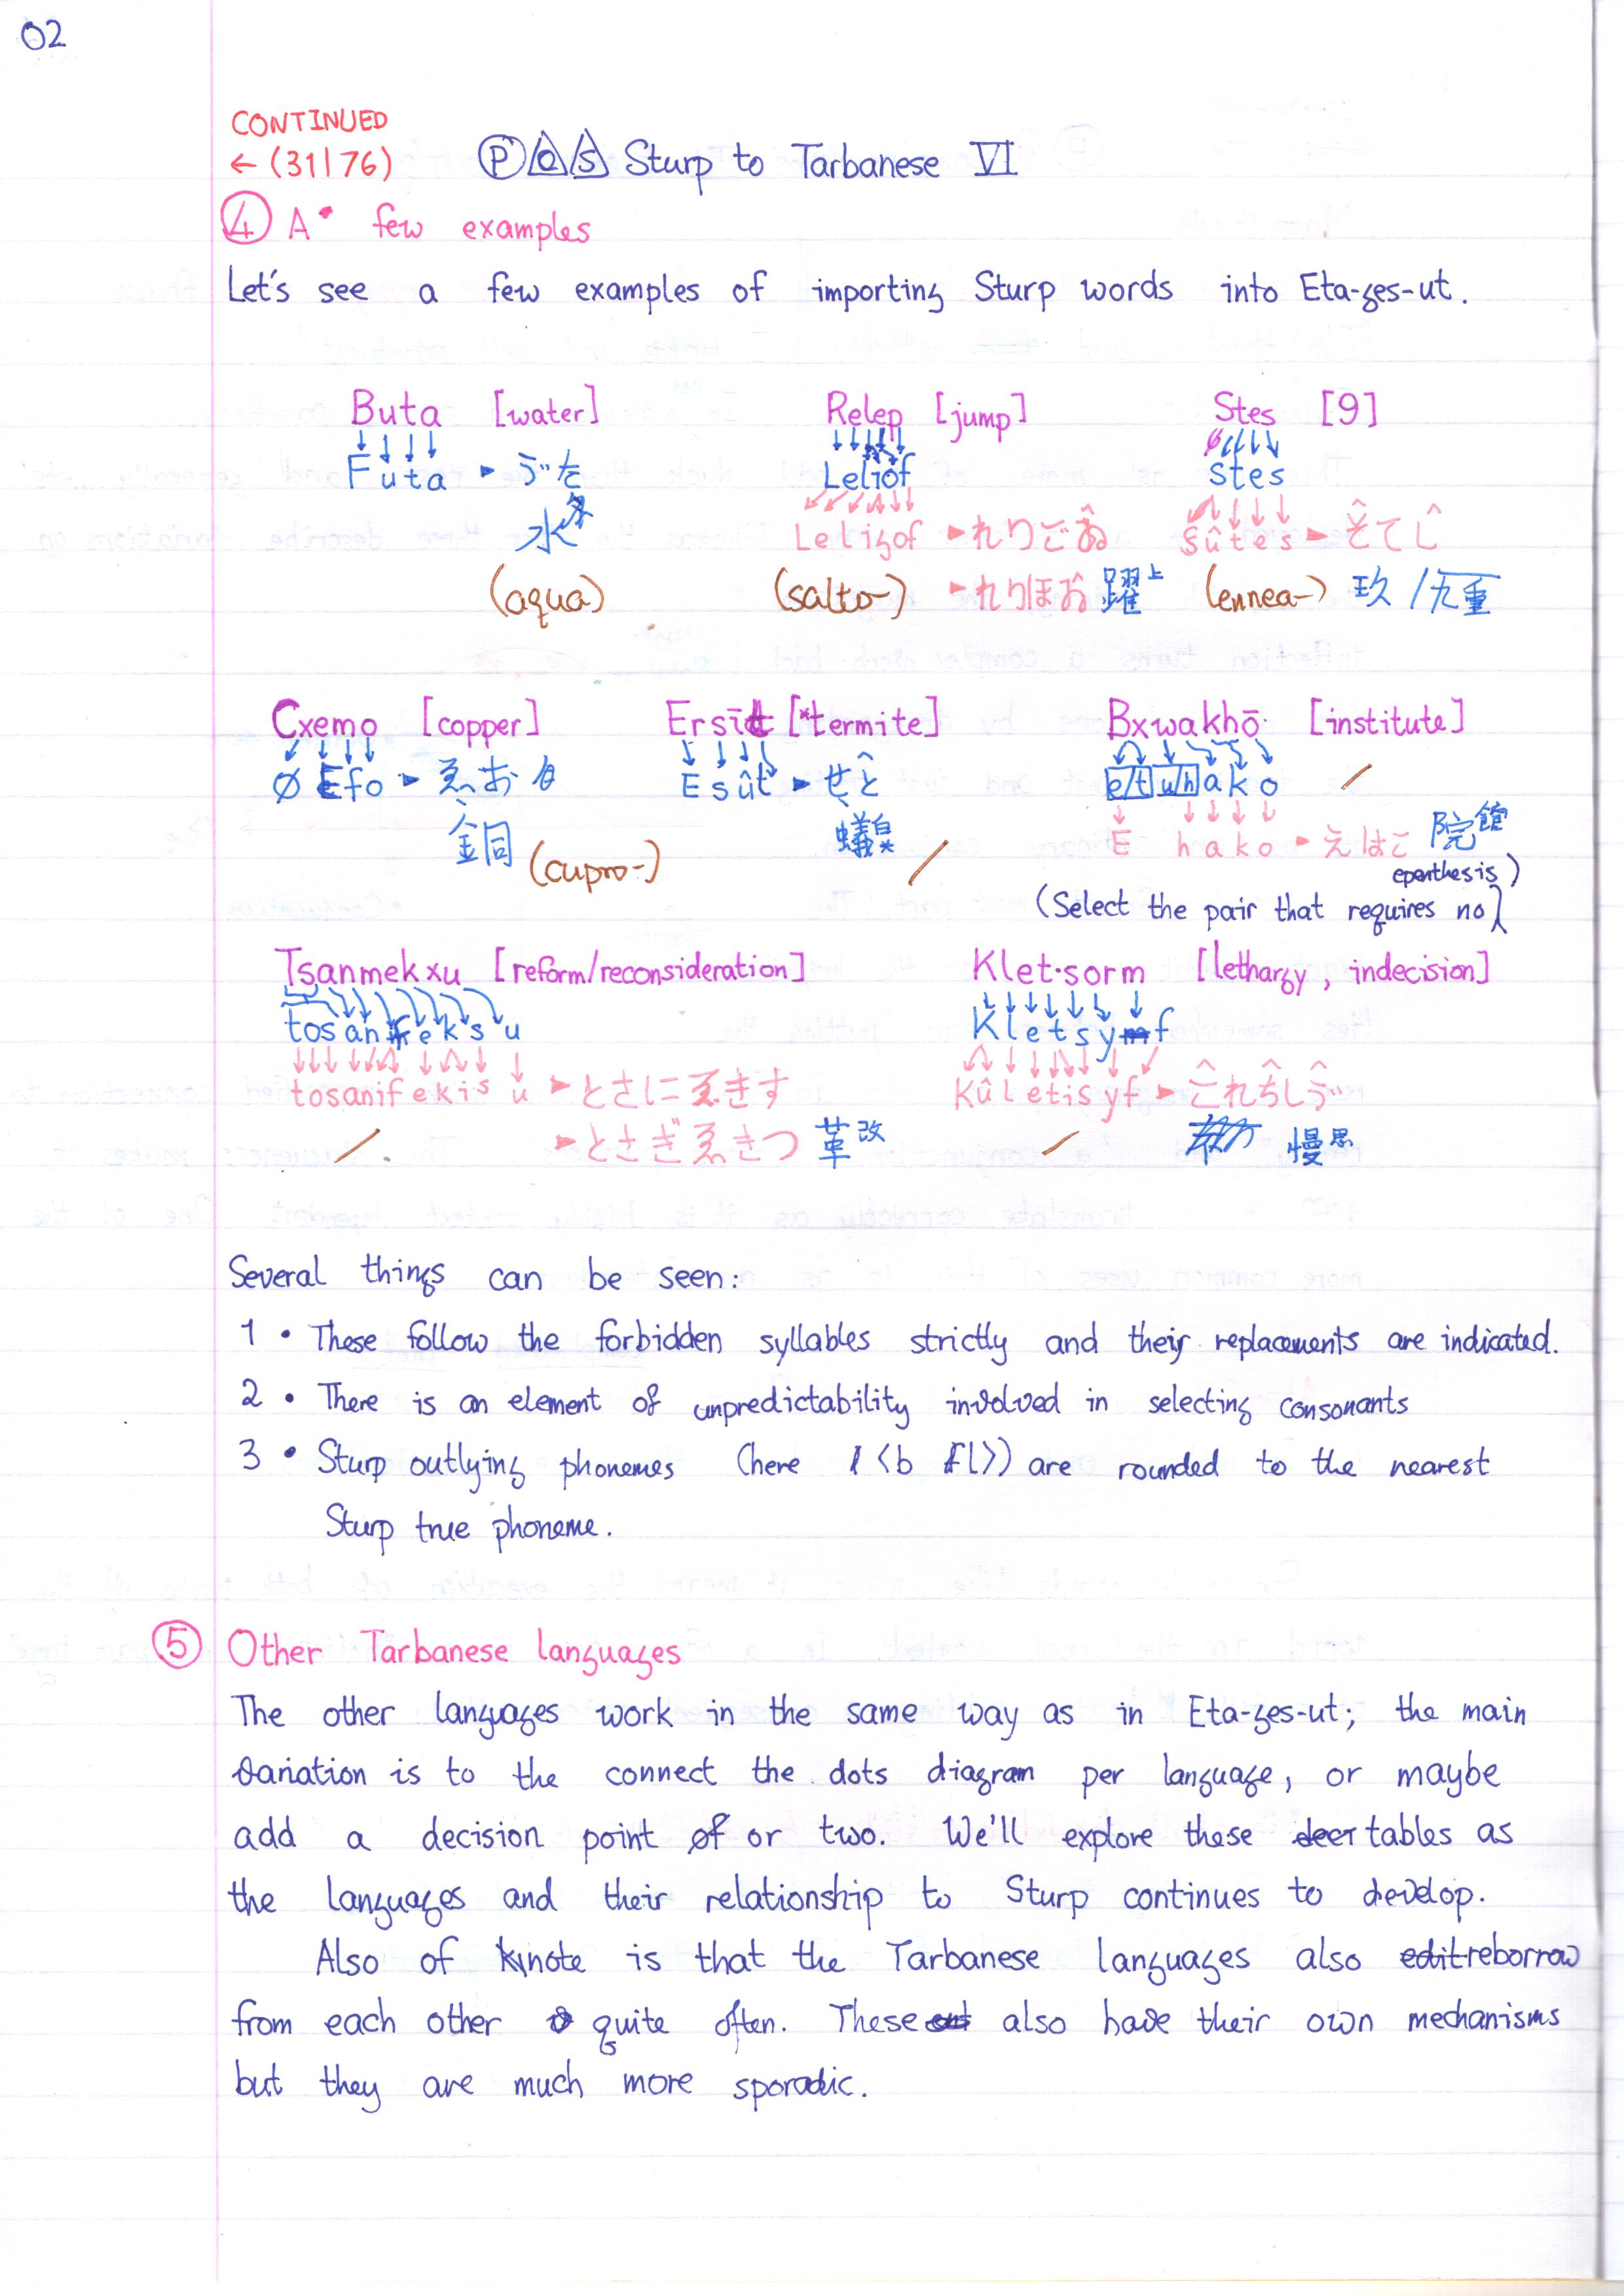 02
CONTINUED
← (31|76)
P a s Sturp to Tarbanese VI
4 A few examples
Let's see a few examples of importing Sturp words into Eta-ges-ut.
Buta [water] Relep [jump] Stes [9]
Futa ▸ ゔた Leliof stes
水 Leligof ▸ れりごゐ sûtes ▸
(aqua) (salto-) ▸ れりほゐ 躍上 (ennea-) 玖 /
Cxemo [copper] Ersit [termite] Bxwakhō [institute]
Ø Efo ▸ ゑお Esût ▸ e/t w/h ako
金同 (cupro-) 蟻 E hako ▸ えはこ 院館
epenthesis
(Select the pair that requires no)
Tsanmekxu [reform/reconsideration] Klet·sorm [lethargy, indecision]
tosanfeksu Kletsyf
tosanifekisu ▸ とさにゑきす Kûletisyf ▸ これちしゔ
▸ とさぎゑきつ 革改 慢思
Several things can be seen:
1 • These follow the forbidden syllables strictly and their replacements are indicated.
2 • There is an element of unpredictability involved in selecting consonants
3 • Sturp outlying phonemes (here ⟨b l⟩) are rounded to the nearest
Sturp true phoneme.
5 Other Tarbanese languages
The other languages work in the same way as in Eta-ges-ut; the main
variation is to the connect the dots diagram per language, or maybe
add a decision point or two. We'll explore these tables as
the languages and their relationship to Sturp continues to develop.
Also of note is that the Tarbanese languages also reborrow
from each other quite often. These also have their own mechanisms
but they are much more sporadic.